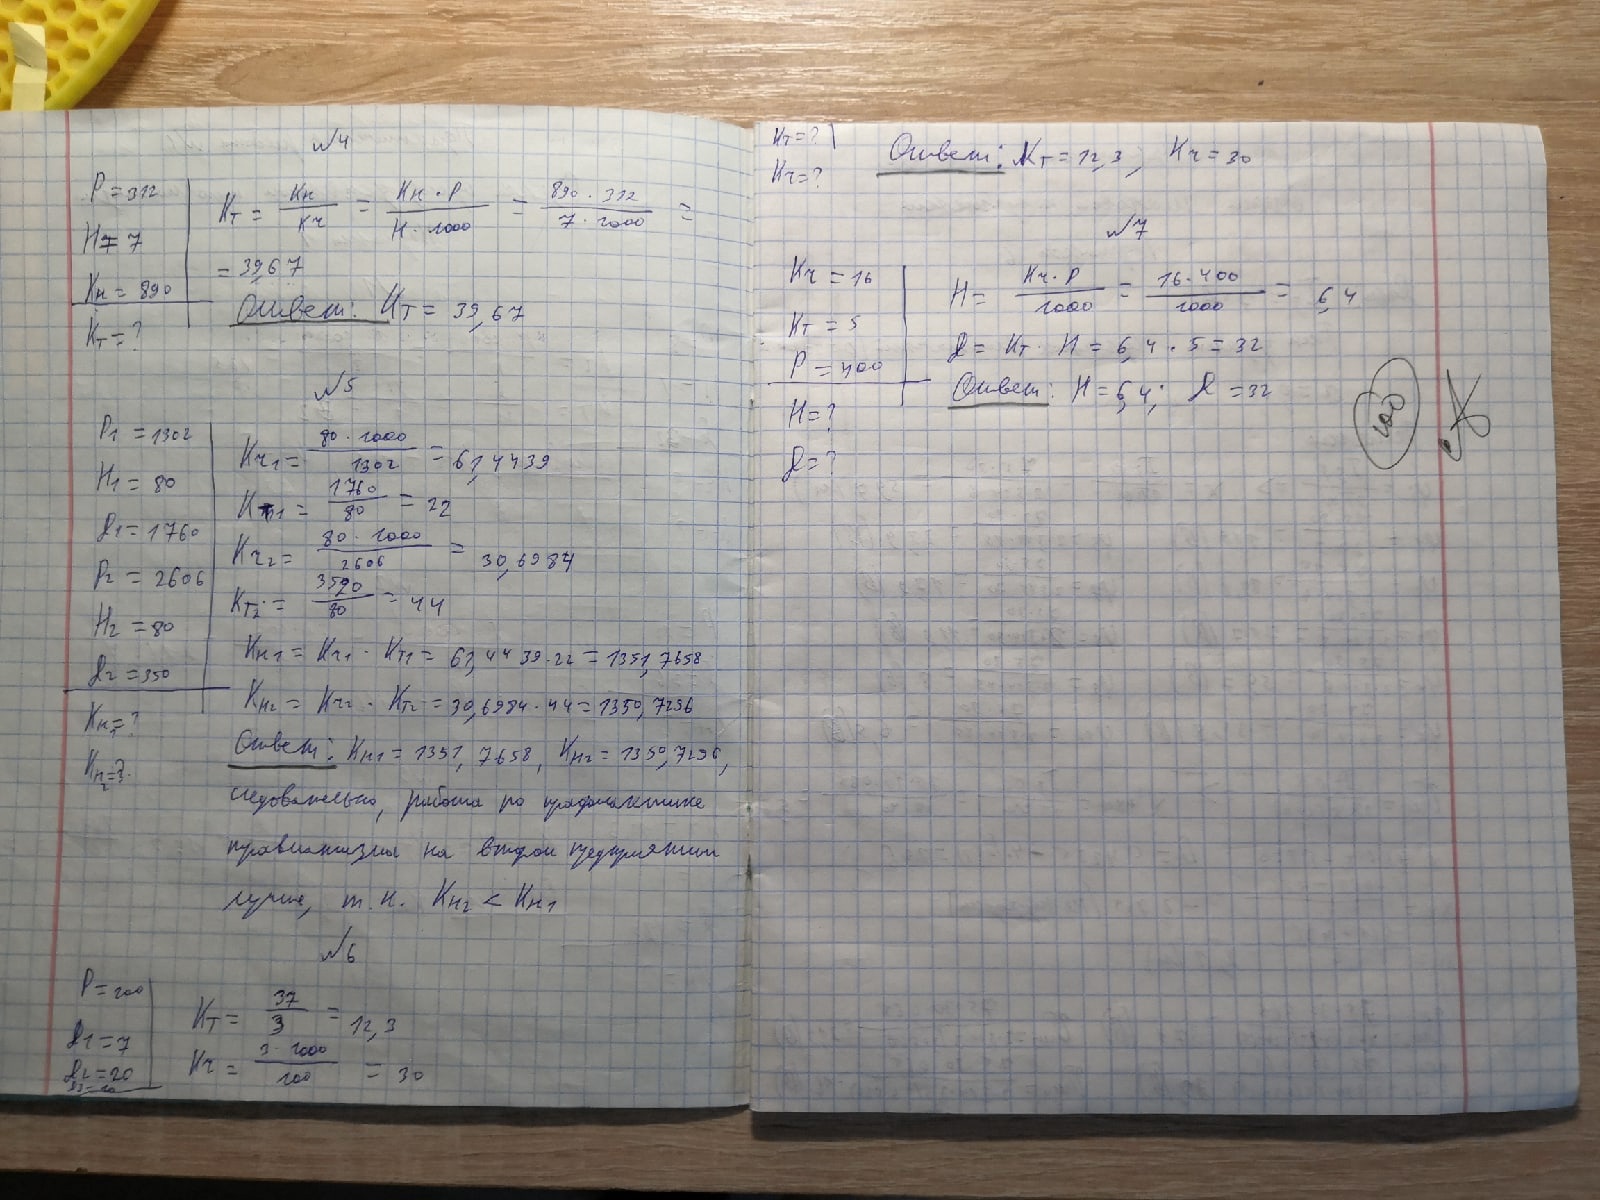 №4
P = 312
H = 7
Кн = 890
Кт = ?
Кт = Кн / Кч = Кн · P / H · 1000 = 890 · 312 / 7 · 1000 =
= 39,67
Ответ: Кт = 39,67
№5
P1 = 1302
H1 = 80
Д1 = 1760
P2 = 2606
H2 = 80
Д2 = 350
Кн1 = ?
Кн2 = ?
Кч1 = 80 · 1000 / 1302 = 61,4439
Кт1 = 1760 / 80 = 22
Кч2 = 80 · 1000 / 2606 = 30,6984
Кт2 = 3520 / 80 = 44
Кн1 = Кч1 · Кт1 = 61,4439 · 22 = 1351,7658
Кн2 = Кч2 · Кт2 = 30,6984 · 44 = 1350,7296
Ответ: Кн1 = 1351,7658, Кн2 = 1350,7296,
следовательно, работа по профилактике
травматизма на втором предприятии
лучше, т.к. Кн2 < Кн1
№6
P = 100
Д1 = 7
Д2 = 20
Д3 = 10
Кт = 37 / 3 = 12,3
Кч = 3 · 1000 / 100 = 30
Кт = ?
Кч = ?
Ответ: Кт = 12,3, Кч = 30
№7
Кч = 16
Кт = 5
P = 400
H = ?
Д = ?
H = Кч · P / 1000 = 16 · 400 / 1000 = 6,4
Д = Кт · H = 6,4 · 5 = 32
Ответ: H = 6,4; Д = 32
100